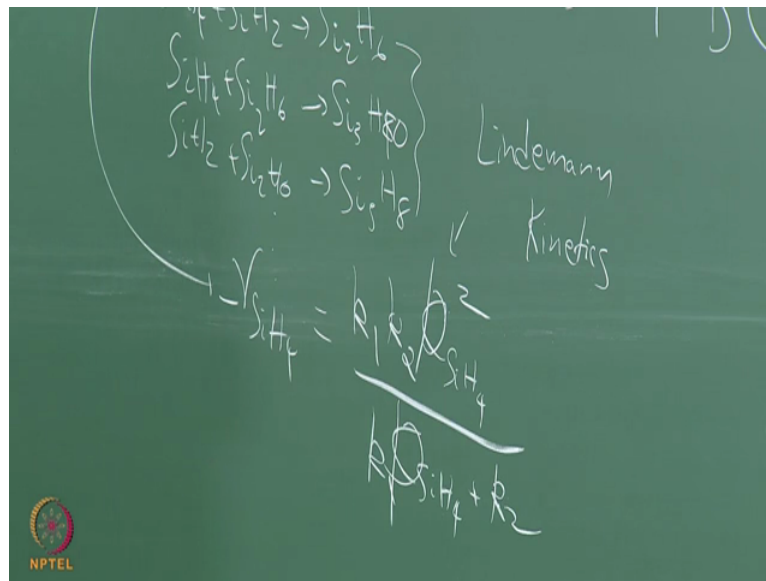 +SiH2 → Si2H6
SiH4+Si2H6 → Si3H
SiH2+Si2H6 → Si3H8
Lindemann
Kinetics
-rSiH4 = k1k2p²SiH4
pSiH4 + k2
NPTEL